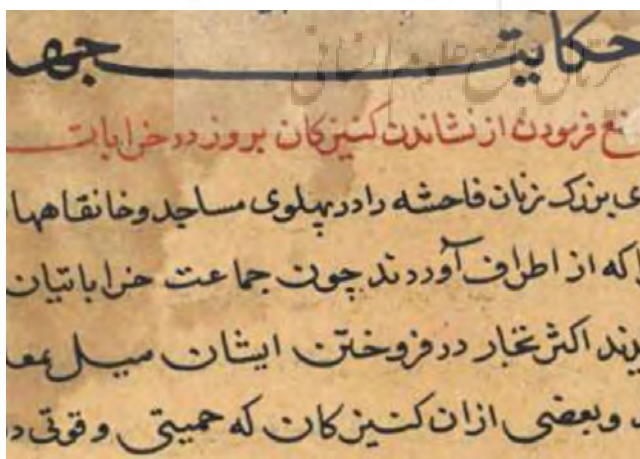 حکایت جهـ
منع فرمودن از نشاندن کنیزکان بزور در خرابات
ی بزرک زنان فاحشه را در پهلوی مساجد و خانقاهها
ا که از اطراف آوردند چون جماعت خراباتیان
یدند اکثر تجار در فروختن ایشان میل بمعا
و بعضی ازان کنیزکان که حمیتی و قوتی د